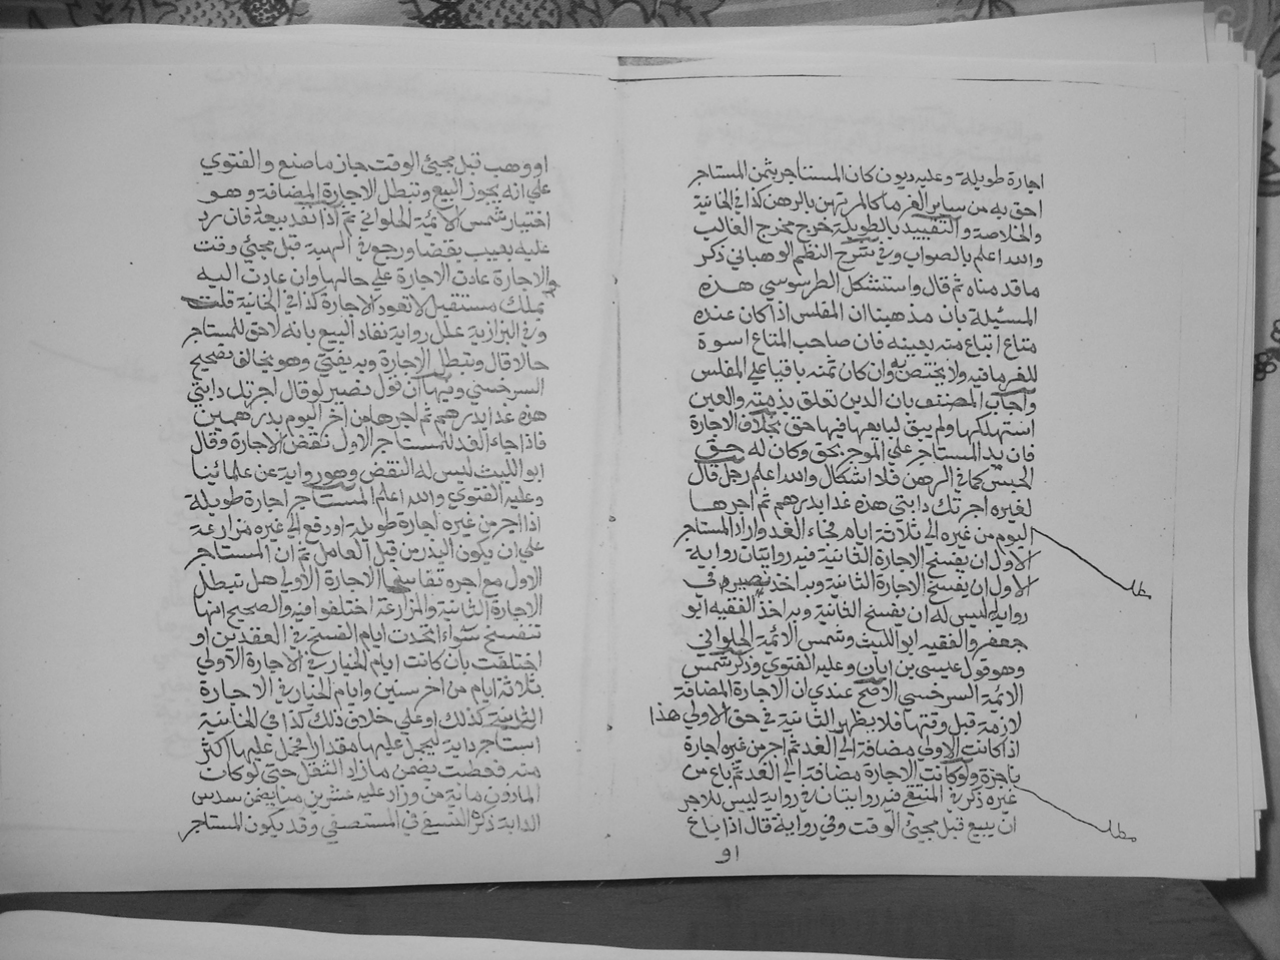 اجارة طويلة وعليه ديون كان المستاجر بثمن المستاجر
احق به من ساير الغرما كالمرتهن بالرهن كذا في الخانية
والخلاصة والتقييد بالطويلة خرج مخرج الغالب
والله اعلم بالصواب وفي شرح النظم الوهباني ذكر
ما قدمناه ثم قال واستشكل الطرسوسي هذه
المسئلة بان مذهبنا ان المفلس اذا كان عنده
متاع ابتاع منه بعينه فان صاحب المتاع اسوة
للغرما فيه ولا يختص به وان كان ثمنه باقيا علي المفلس
واجاب المصنف بان الدين تعلق بذمته والعين
استهلكها ولم يبق لبايعها فيها حق بخلاف الاجارة
فان يد المستاجر علي الموجر بحق وكان له حق
الحبس كما في الرهن فلا اشكال والله اعلم رجل قال
لغيره اجرتك دابتي هذه غدا بدرهم ثم اجرها
اليوم من غيره الي ثلاثة ايام فجاء الغد واراد المستاجر
الاول ان يفسخ الاجارة الثانية فيه روايتان رواية
الاول ان يفسخ الاجارة الثانية وبه اخذ نصير وفي
رواية ليس له ان يفسخ الثانية وبه اخذ الفقيه ابو
جعفر والفقيه ابو الليث وشمس الائمة الحلواني
وهو قول عيسي بن ابان وعليه الفتوي وذكر شمس
الائمة السرخسي الاصح عندي ان الاجارة المضافة
لازمة قبل وقتها فلا يظهر الثانية في حق الاولي هذا
اذا كانت الاولي مضافة الي الغد ثم اجر من غيره اجارة
ناجزة ولو كانت الاجارة مضافة الي الغد ثم باع من
غيره ذكر في المنتقي فيه روايتان في رواية ليس للاجر
ان يبيع قبل مجيئ الوقت وفي رواية قال اذا باع
او
مطلب
مطلب
او وهب قبل مجيئ الوقت جاز ما صنع والفتوي
علي انه يجوز البيع وتبطل الاجارة المضافة وهو
اختيار شمس الائمة الحلواني ثم اذا نفذ بيعه فان رد
عليه بعيب بقضا او رجع في الهبة قبل مجيئ وقت
الاجارة عادت الاجارة علي حالها وان عادت اليه
بملك مستقبل لا تعود الاجارة كذا في الخانية قلت
وفي البزازية علل رواية نفاد البيع بانه لا حق للمستاجر
حالا قال وتبطل الاجارة وبه يفتي وهو يخالف تصحيح
السرخسي وفيها ان قول نصير لو قال اجرتك دابتي
هذه غدا بدرهم ثم اجرها من اخر اليوم بدرهمين
فاذا جاء الغد للمستاجر الاول نقض الاجارة وقال
ابو الليث ليس له النقض وهو رواية عن علمائنا
وعليه الفتوي والله اعلم المستاجر اجارة طويلة
اذا اجر من غيره اجارة طويلة او دفع الي غيره مزارعة
علي ان يكون البذر من قبل العامل ثم ان المستاجر
الاول مع اجره تفاسخا الاجارة الاولي هل تبطل
الاجارة الثانية والمزارعة اختلفوا فيه والصحيح انها
تنفسخ سواء اتحدت ايام الفسخ في العقدين او
اختلفت بان كانت ايام الخيار في الاجارة الاولي
بثلاثة ايام من اخر سنين وايام الخيار في الاجارة
الثانية كذلك او علي خلاف ذلك كذا في الخانية
استاجر دابة ليحمل عليها مقدارا فحمل عليها اكثر
منه فعطبت يضمن ما زاد الثقل حتي لو كان
الماذون مائة من وزاد عليه عشرين منا يضمن سدس
الدابة ذكره النسفي في المستصفي وقد يكون المستاجر